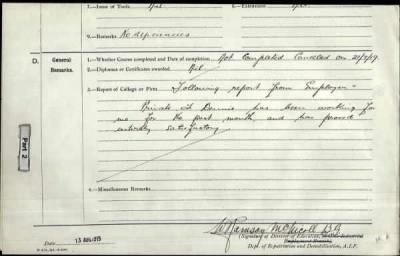 1.—Issue of Tools Nil 2.—Extension Nil.
9.—Remarks No dependencies
D. General Remarks. 1.—Whether Course completed and Date of completion Not Completed Cancelled on 21/7/19.
2.—Diplomas or Certificates awarded. Nil.
3.—Report of College or Firm Following report from Employer—
Private A Dennis has been working for
me for the past month, and has proved
entirely satisfactory
Part 2
4.—Miscellaneous Remarks
McNicoll B.G
(Signature of Director of Education,
Date 13 AUG 1919
Dept. of Repatriation and Demobilisation, A.I.F.